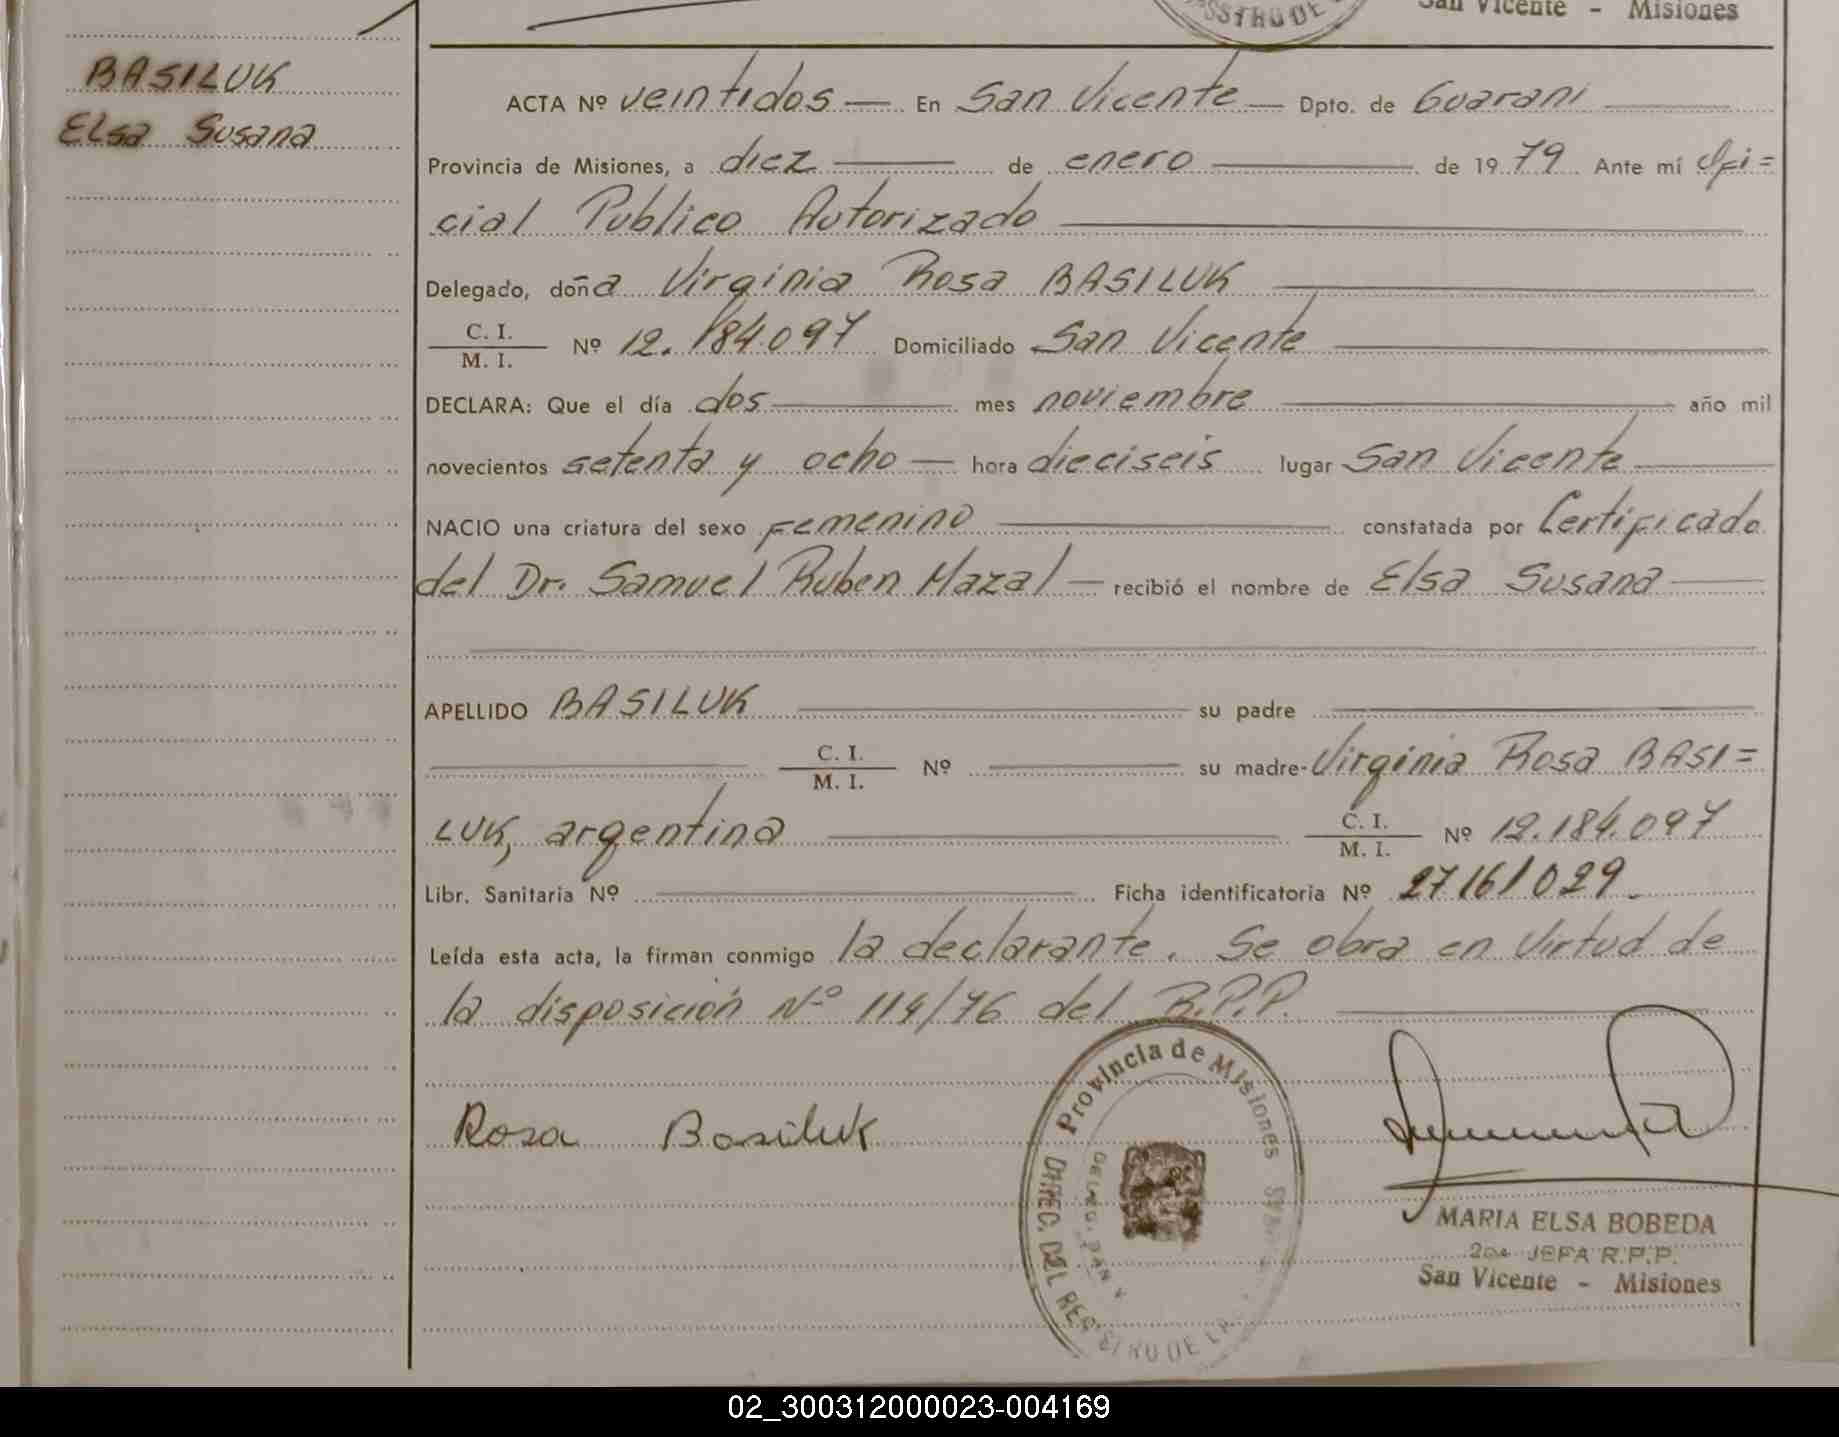 San Vicente - Misiones
BASILUK
Elsa Susana
ACTA Nº veintidos — En San Vicente — Dpto. de Guarani
Provincia de Misiones, a diez de enero de 1979 Ante mí Ofi=
cial Publico Autorizado
Delegado, doña Virginia Rosa BASILUK
C. I.
M. I. Nº 12.184.097 Domiciliado San Vicente
DECLARA: Que el día dos mes noviembre año mil
novecientos setenta y ocho — hora dieciseis lugar San Vicente
NACIO una criatura del sexo femenino constatada por Certificado
del Dr. Samuel Ruben Mazal — recibió el nombre de Elsa Susana
APELLIDO BASILUK su padre
C. I.
M. I. Nº su madre- Virginia Rosa BASI=
LUK, argentina C. I.
M. I. Nº 12.184.097
Libr. Sanitaria Nº Ficha identificatoria Nº 27161029.
Leída esta acta, la firman conmigo la declarante. Se obra en virtud de
la disposición Nº 114/76 del R.P.P.
Provincia de Misiones
DIREC. DEL REGISTRO DE
Rosa Basiluk
MARIA ELSA BOBEDA
2da JEFA R.P.P.
San Vicente - Misiones
02_300312000023-004169